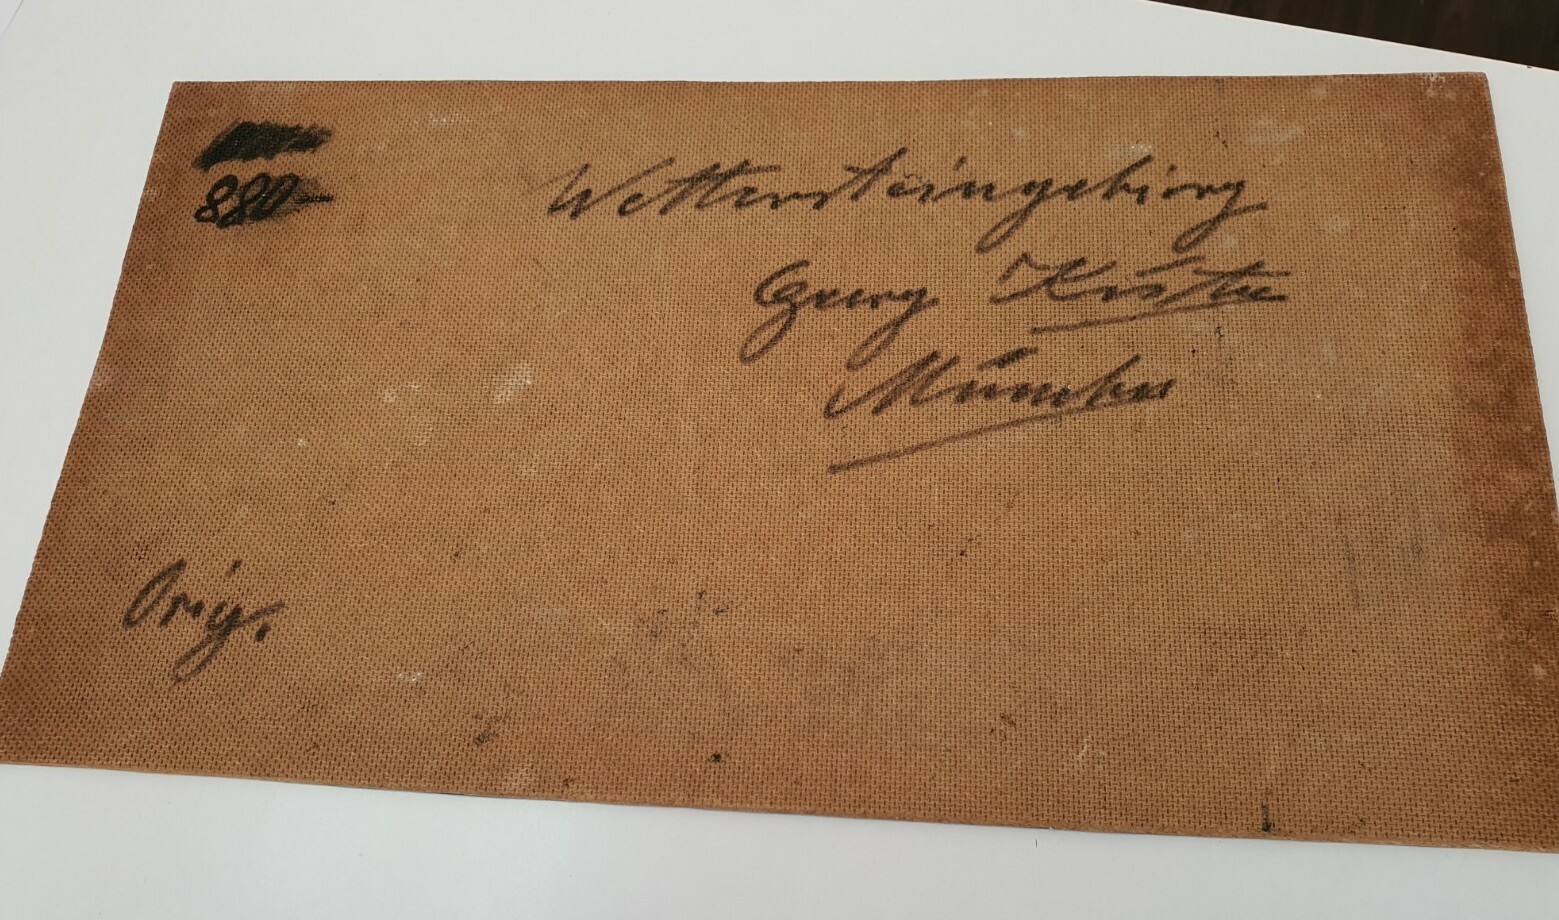 880
Wettersteingebirg
Georg
München
Orig.